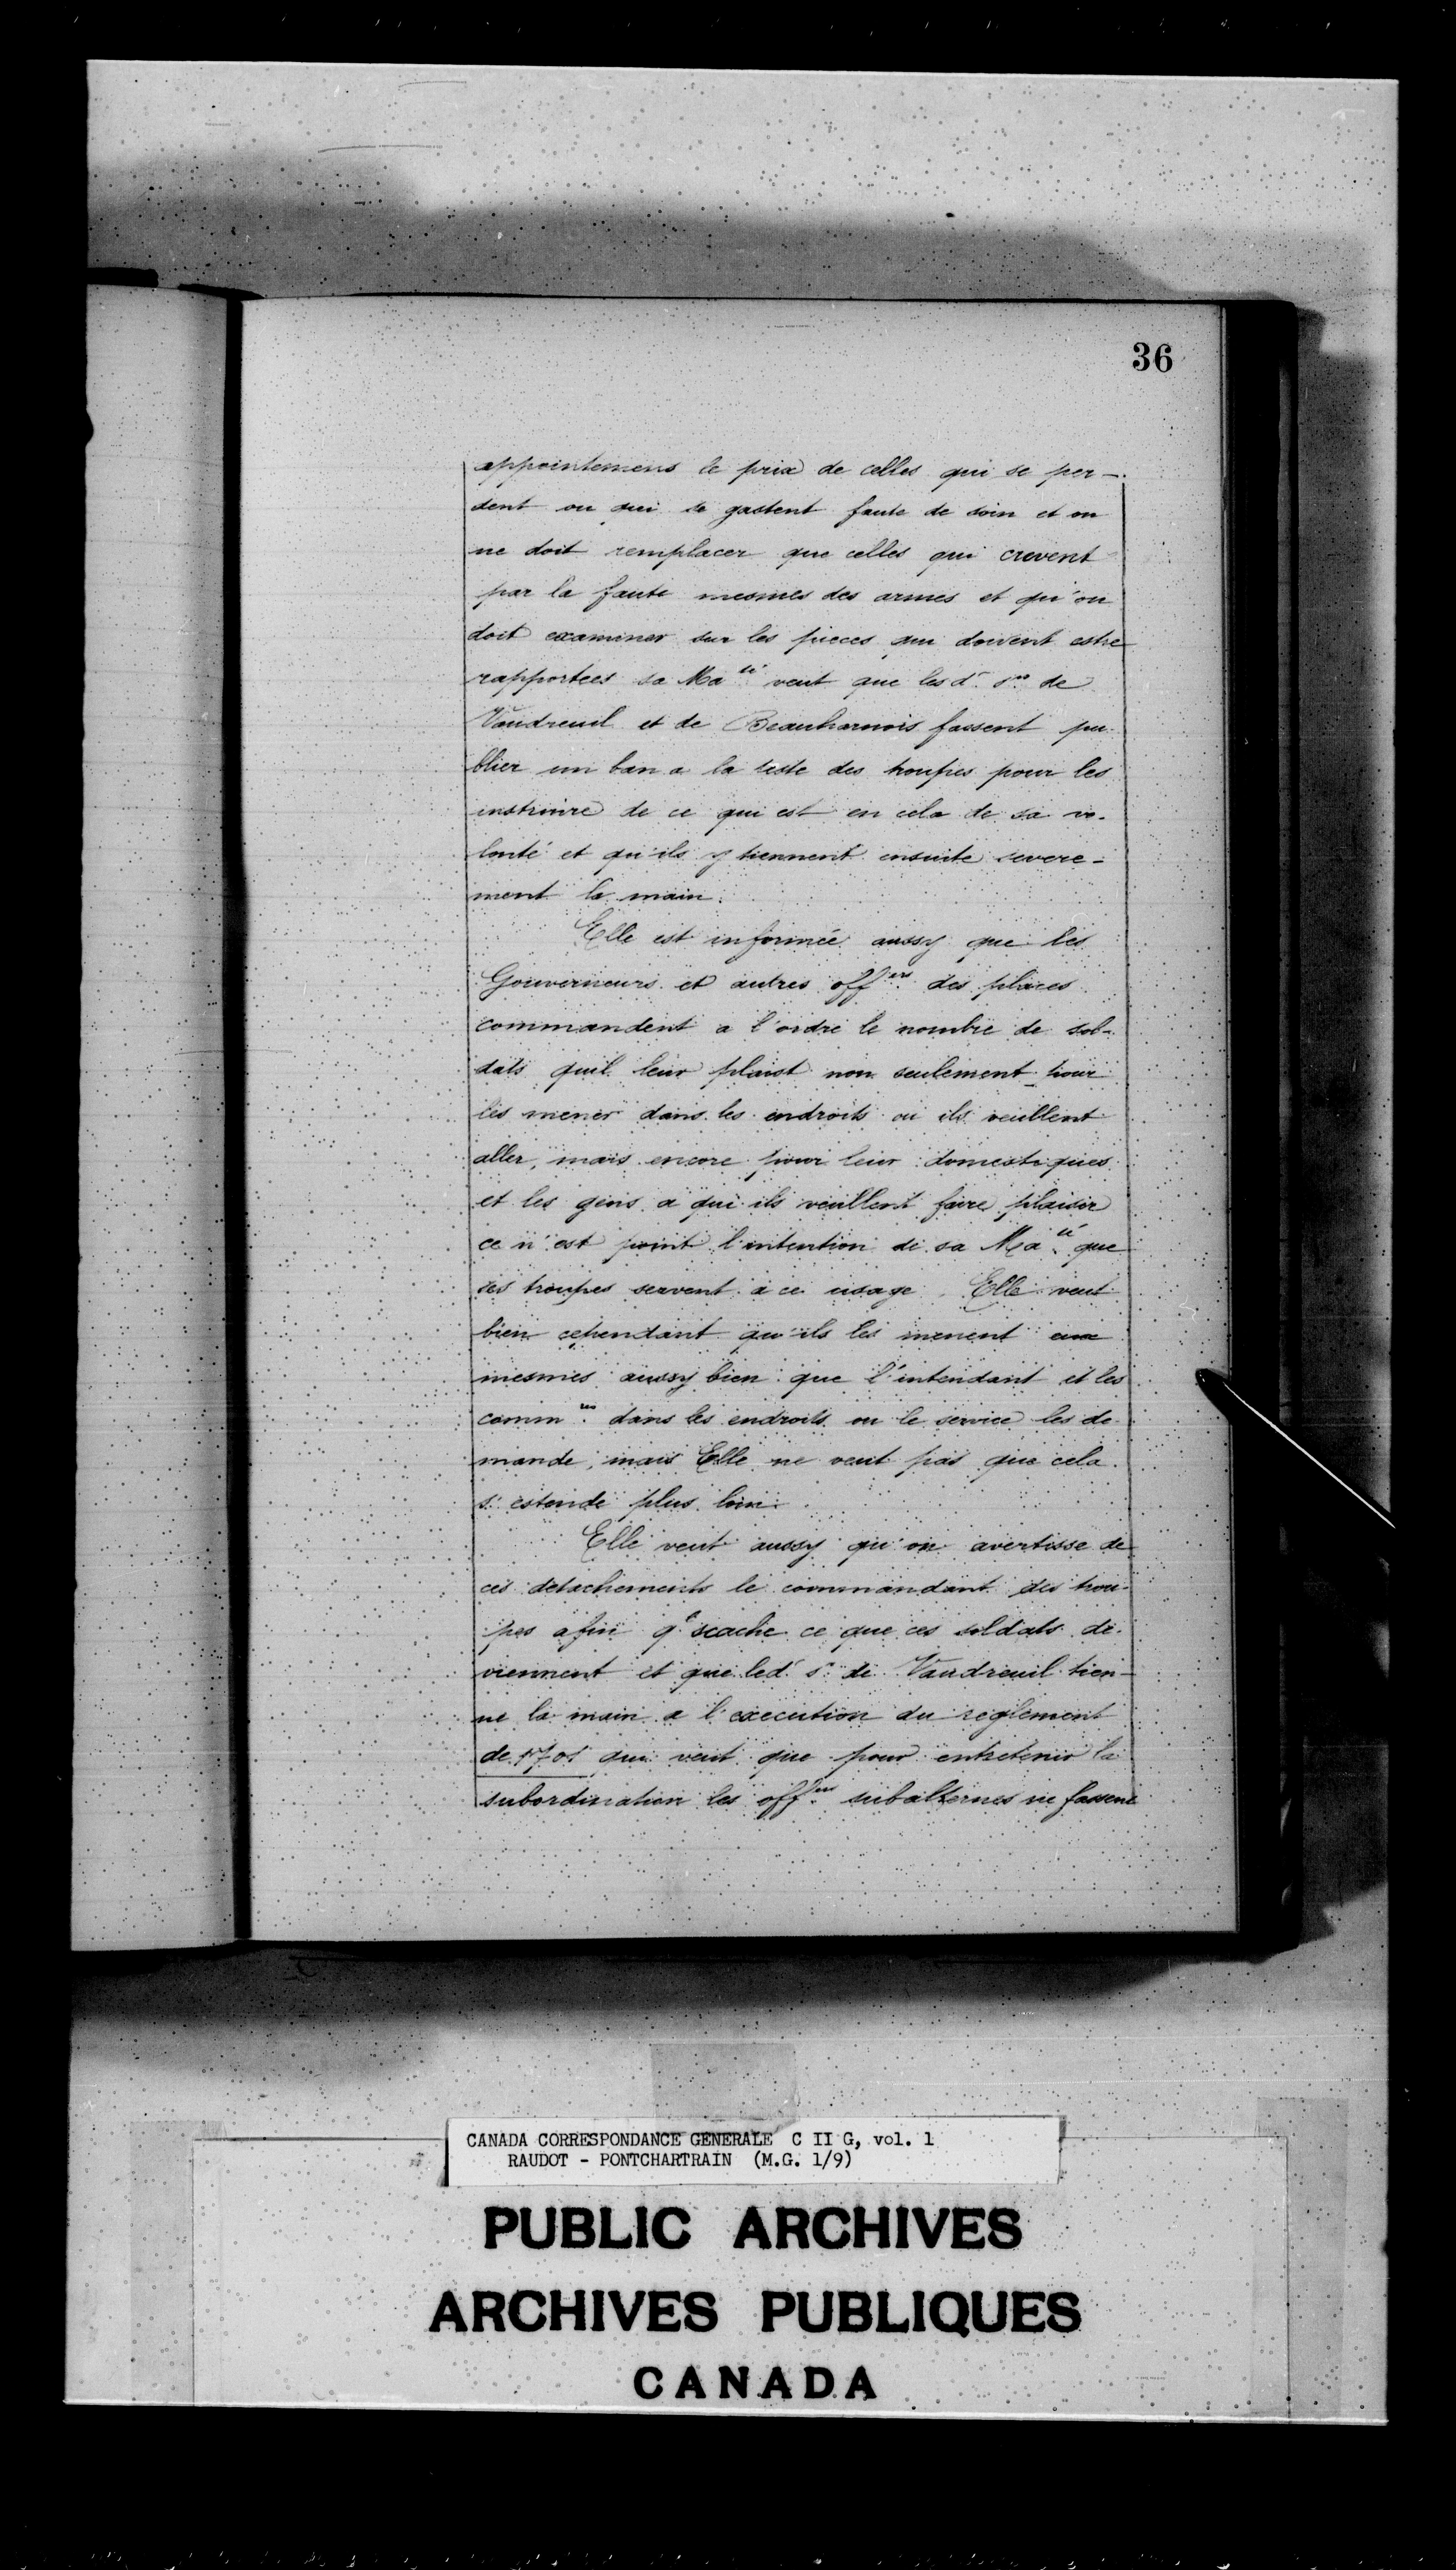 36
appointemens le prix de celles qui se per-
dent ou qui se gastent faute de soin et on
ne doit remplacer que celles qui crevent
par la faute mesmes des armes et qu'on
doit examiner sur les pieces qui doivent estre
rapportées sa Ma té veut que les d. srs de
Vaudreuil et de Beauharnois fassent pu-
blier un ban a la teste des troupes pour les
instruire de ce qui est en cela de sa vo-
lonté et qu'ils y tiennent ensuite severe-
ment la main.
Elle est informée aussy que les
Gouverneurs et autres off ers des places
commandent a l'ordre le nombre de sol-
dats quil leur plaist non seulement pour
les mener dans les endroits ou ils veullent
aller, mais encore pour leur domestiques
et les gens a qui ils veullent faire plaisir
ce n'est point l'intention de sa Ma té que
ses troupes servent a ce usage. Elle veut
bien cependant qu'ils les menent eux
mesmes aussy bien que l'intendant et les
comm res dans les endroits ou le service les de-
mande, mais Elle ne veut pas que cela
s'estende plus loin.
Elle veut aussy qu'on avertisse de
ces detachements le commandant des trou-
pes afin q'l scache ce que ces soldats de-
viennent et que led. sr de Vaudreuil tien-
ne la main a l'execution du reglement
de 1701 qui veut que pour entretenir la
subordination les off ers subalternes ne fassent
CANADA CORRESPONDANCE GENERALE C II G, vol. 1
RAUDOT - PONTCHARTRAIN (M.G. 1/9)
PUBLIC ARCHIVES
ARCHIVES PUBLIQUES
CANADA